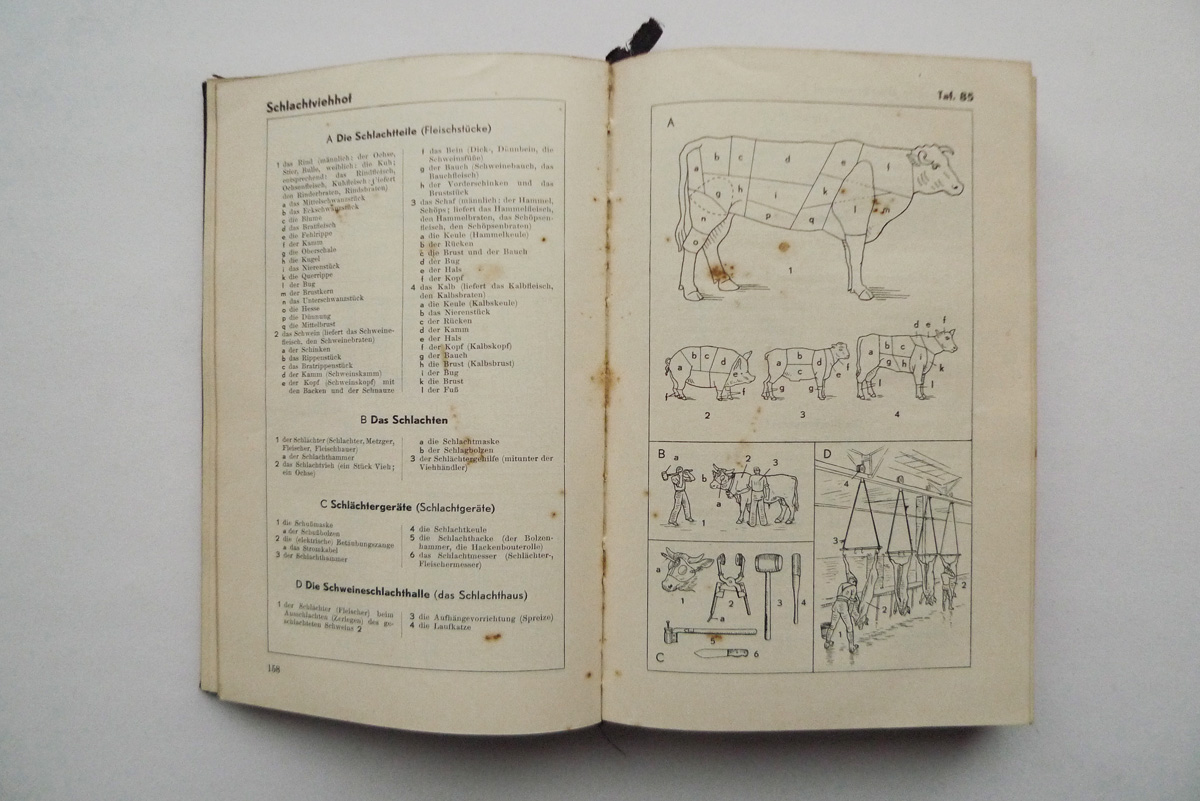 Schlachtviehhof
A Die Schlachtteile (Fleischstücke)
1 das Rind (männlich: der Ochse,
Stier, Bulle, weiblich: die Kuh;
entsprechend: das Rindfleisch,
Ochsenfleisch, Kuhfleisch; liefert
den Rinderbraten, Rindsbraten)
a das Mittelschwanzstück
b das Eckschwanzstück
c die Blume
d das Bratfleisch
e die Fehlrippe
f der Kamm
g die Oberschale
h die Kugel
i das Nierenstück
k die Querrippe
l der Bug
m der Brustkern
n das Unterschwanzstück
o die Hesse
p die Dünnung
q die Mittelbrust
2 das Schwein (liefert das Schweine-
fleisch, den Schweinebraten)
a der Schinken
b das Rippenstück
c das Bratrippenstück
d der Kamm (Schweinskamm)
e der Kopf (Schweinskopf) mit
den Backen und der Schnauze
f das Bein (Dick-, Dünnbein, die
Schweinsfüße)
g der Bauch (Schweinebauch, das
Bauchfleisch)
h der Vorderschinken und das
Bruststück
3 das Schaf (männlich: der Hammel,
Schöps; liefert das Hammelfleisch,
den Hammelbraten, das Schöpsen-
fleisch, den Schöpsenbraten)
a die Keule (Hammelkeule)
b der Rücken
c die Brust und der Bauch
d der Bug
e der Hals
f der Kopf
4 das Kalb (liefert das Kalbfleisch,
den Kalbsbraten)
a die Keule (Kalbskeule)
b das Nierenstück
c der Rücken
d der Kamm
e der Hals
f der Kopf (Kalbskopf)
g der Bauch
h die Brust (Kalbsbrust)
i der Bug
k die Brust
l der Fuß
B Das Schlachten
1 der Schlächter (Schlachter, Metzger,
Fleischer, Fleischhauer)
a der Schlachthammer
2 das Schlachtvieh (ein Stück Vieh;
ein Ochse)
a die Schlachtmaske
b der Schlagbolzen
3 der Schlächtergehilfe (mitunter der
Viehhändler)
C Schlächtergeräte (Schlachtgeräte)
1 die Schußmaske
a der Schußbolzen
2 die (elektrische) Betäubungszange
a das Stromkabel
3 der Schlachthammer
4 die Schlachtkeule
5 die Schlachthacke (der Bolzen-
hammer, die Hackenbouterolle)
6 das Schlachtmesser (Schlächter-,
Fleischermesser)
D Die Schweineschlachthalle (das Schlachthaus)
1 der Schlächter (Fleischer) beim
Ausschlachten (Zerlegen) des ge-
schlachteten Schweins 2
3 die Aufhängevorrichtung (Spreize)
4 die Laufkatze
158
Taf. 85
A
a b c d e f
g h i k l m
n o p q
1
a b c d e f f
2
a b c d e f g g
3
a b c d e f g h i k l l
4
B a b 2 3
a
1
D
4
3
2
2
1
a
1
2
a
3
4
5
6
C